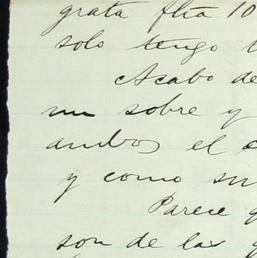 grata flia 10
solo tengo
Acabo de
un sobre y
ambos el
y como su
Parece q
son de las q